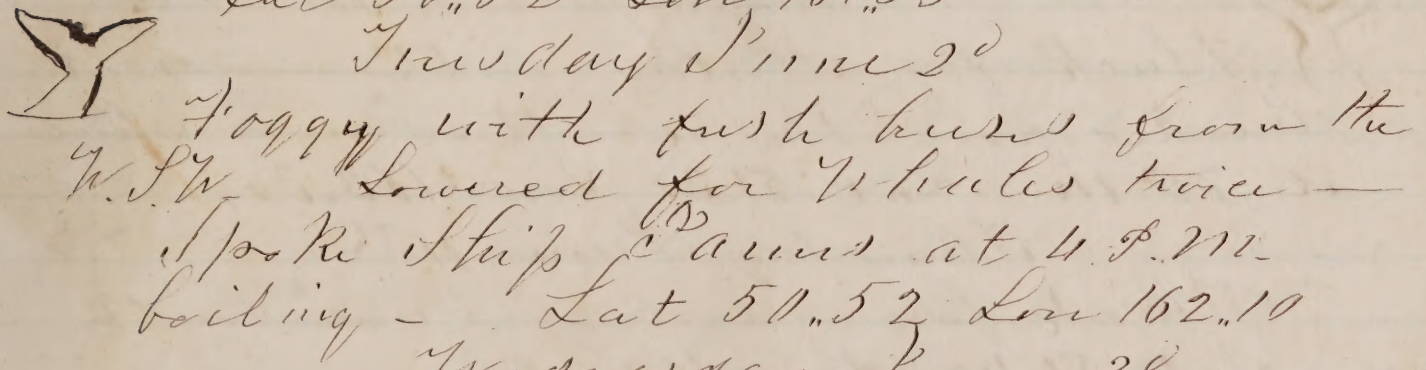 Tuesday June 2d
Foggy with fresh breezes from the
W.S.W. Lowered for Whales twice —
Spoke Ship at 4 P.M.
boiling – Lat 50„52 Lon 162„10